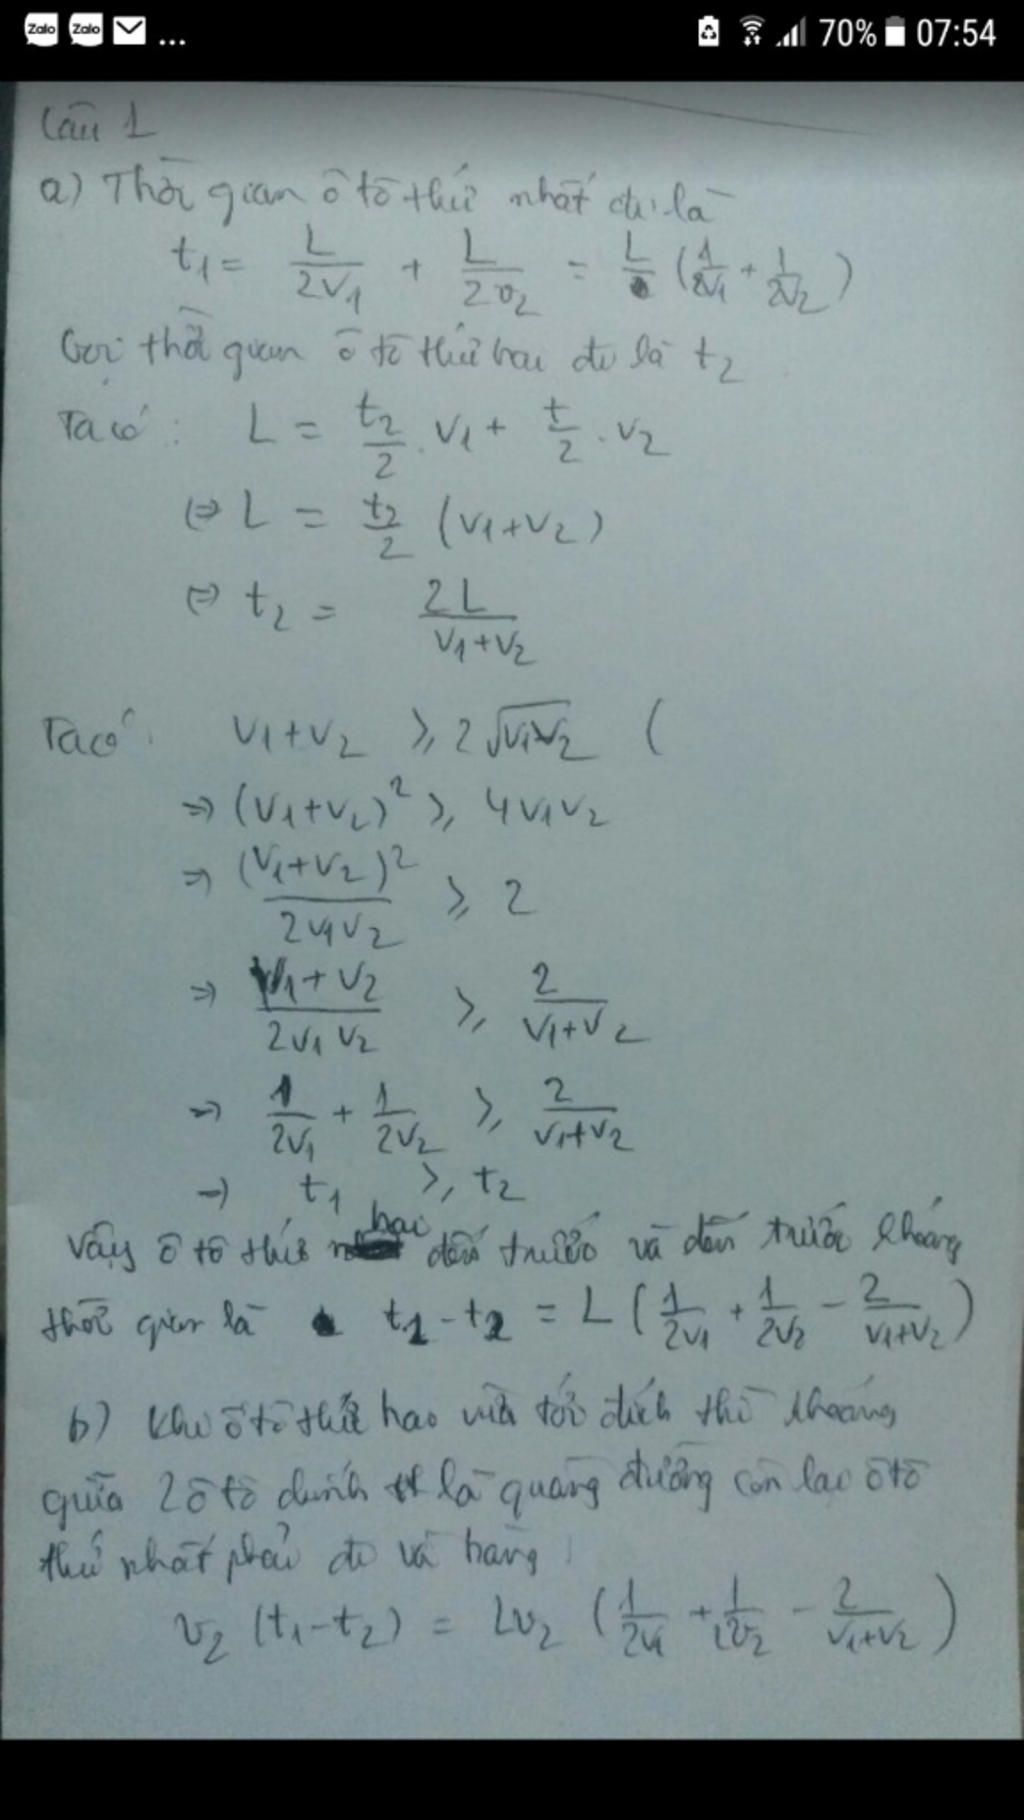 Zalo Zalo ... 70% 07:54
Câu 1
a) Thời gian ô tô thứ nhất đi là
t1 = L/2v1 + L/2v2 = L (1/2v1 + 1/2v2)
Gọi thời gian ô tô thứ hai đi là t2
Ta có: L = t2/2 . v1 + t/2 . v2
⇔ L = t2/2 (v1+v2)
⇔ t2 = 2L/(v1+v2)
Ta có: v1+v2 ≥ 2√v1v2 (
⇒ (v1+v2)² ≥ 4v1v2
⇒ (v1+v2)²/2v1v2 ≥ 2
⇒ (v1+v2)/2v1v2 ≥ 2/(v1+v2)
⇒ 1/2v1 + 1/2v2 ≥ 2/(v1+v2)
⇒ t1 ≥ t2
Vậy ô tô thứ hai đến trước và đến trước khoảng
thời gian là t1 - t2 = L (1/2v1 + 1/2v2 - 2/(v1+v2))
b) Khi ô tô thứ hai vừa tới đích thì khoảng
giữa 2 ô tô chính là quãng đường còn lại ô tô
thứ nhất phải đi và bằng
v2 (t1-t2) = Lv2 (1/2v1 + 1/2v2 - 2/(v1+v2))